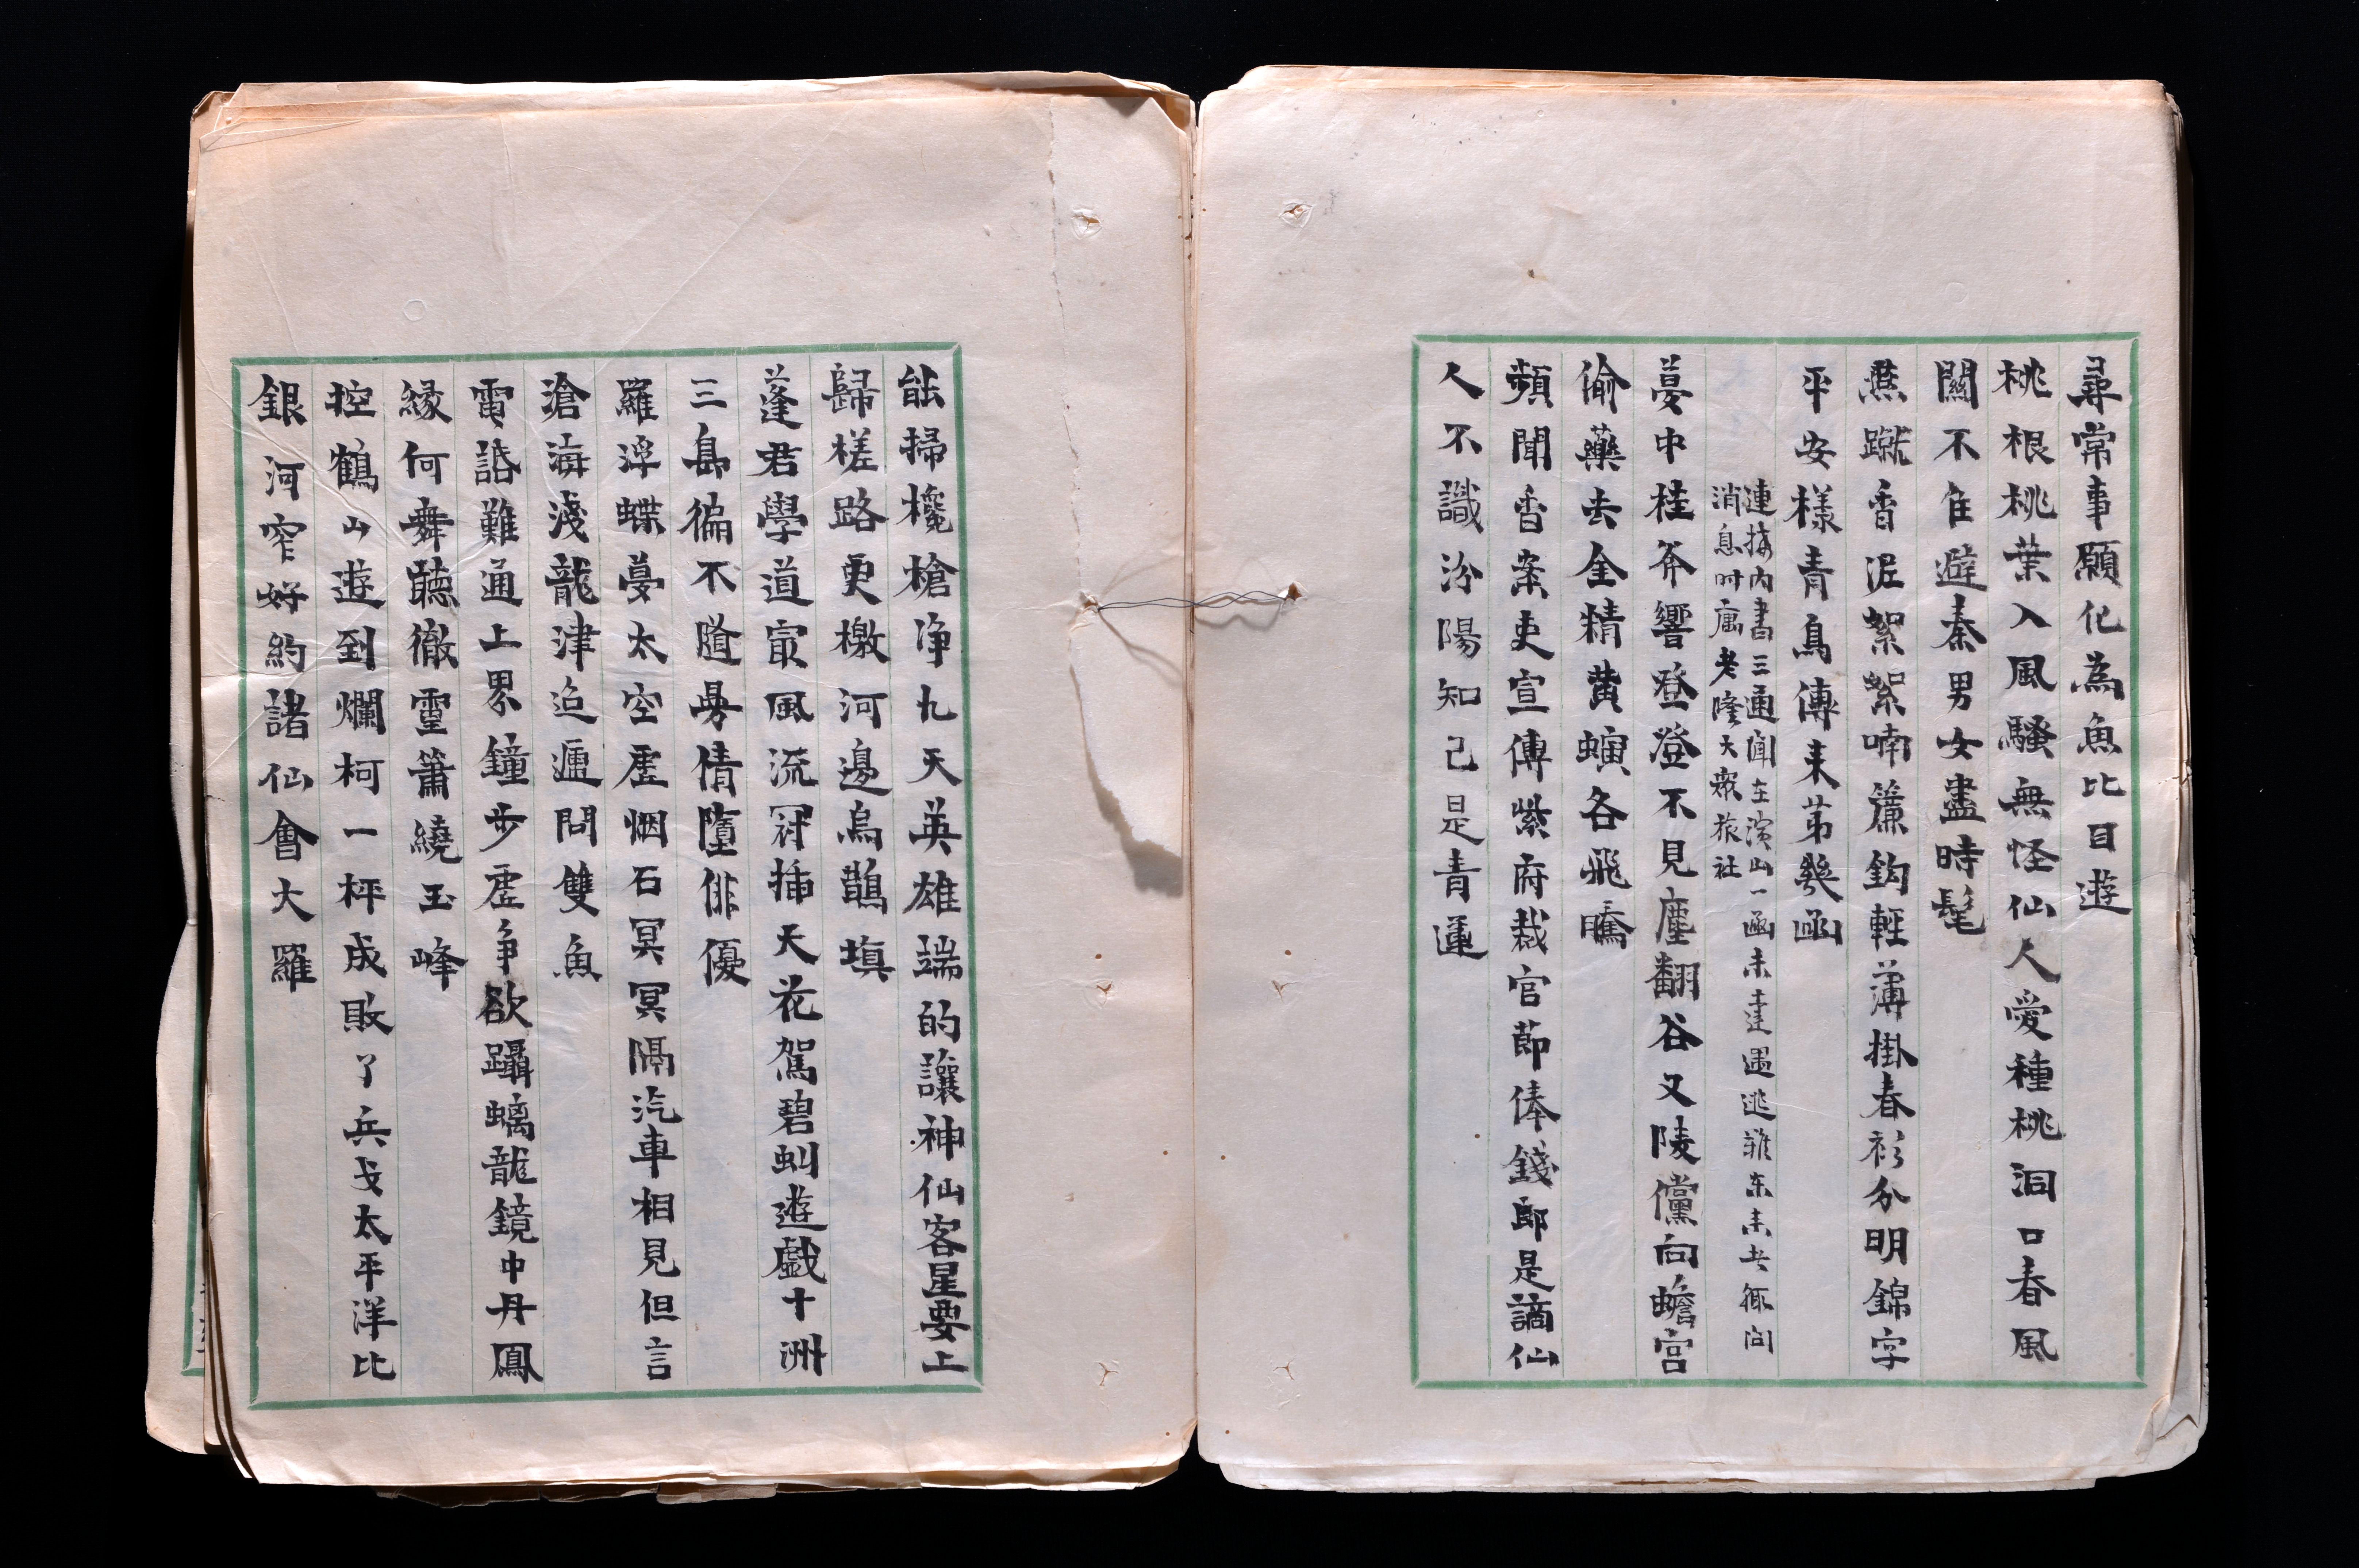 尋常事願化為魚比目遊
桃根桃葉入風騷無怪仙人愛種桃洞口春風
關不住避秦男女盡時髦
燕蹴香泥絮絮喃簾鈎輕薄掛春衫分明錦字
平安樣青鳥傳來苐幾函
連接內書三通聞在濱山一函未達遇逃難東來者輒問
消息时寓老隆大衆旅社
夢中桂斧響登登不見塵翻谷又陵儻向蟾宮
偷藥去金精黃螾各飛騰
頻聞香案吏宣傳紫府裁官節俸錢郎是謫仙
人不識汾陽知己是青蓮
能掃欃槍净九天英雄端的讓神仙客星要上
歸槎路更檄河邊烏鵲填
蓬君學道㝡風流冠插天花駕碧虯遊戲十洲
三島徧不隨曼倩墮俳優
羅浮蝶夢太空虛烟石冥冥隔汽車相見但言
滄海淺龍津迢遞問雙魚
電話難通上界鐘步虛争欲躡螭龍鏡中丹鳳
緣何舞聽徹靈簫繞玉峰
控鶴山遊到爛柯一枰成敗了兵戈太平洋比
銀河窄好約諸仙會大羅